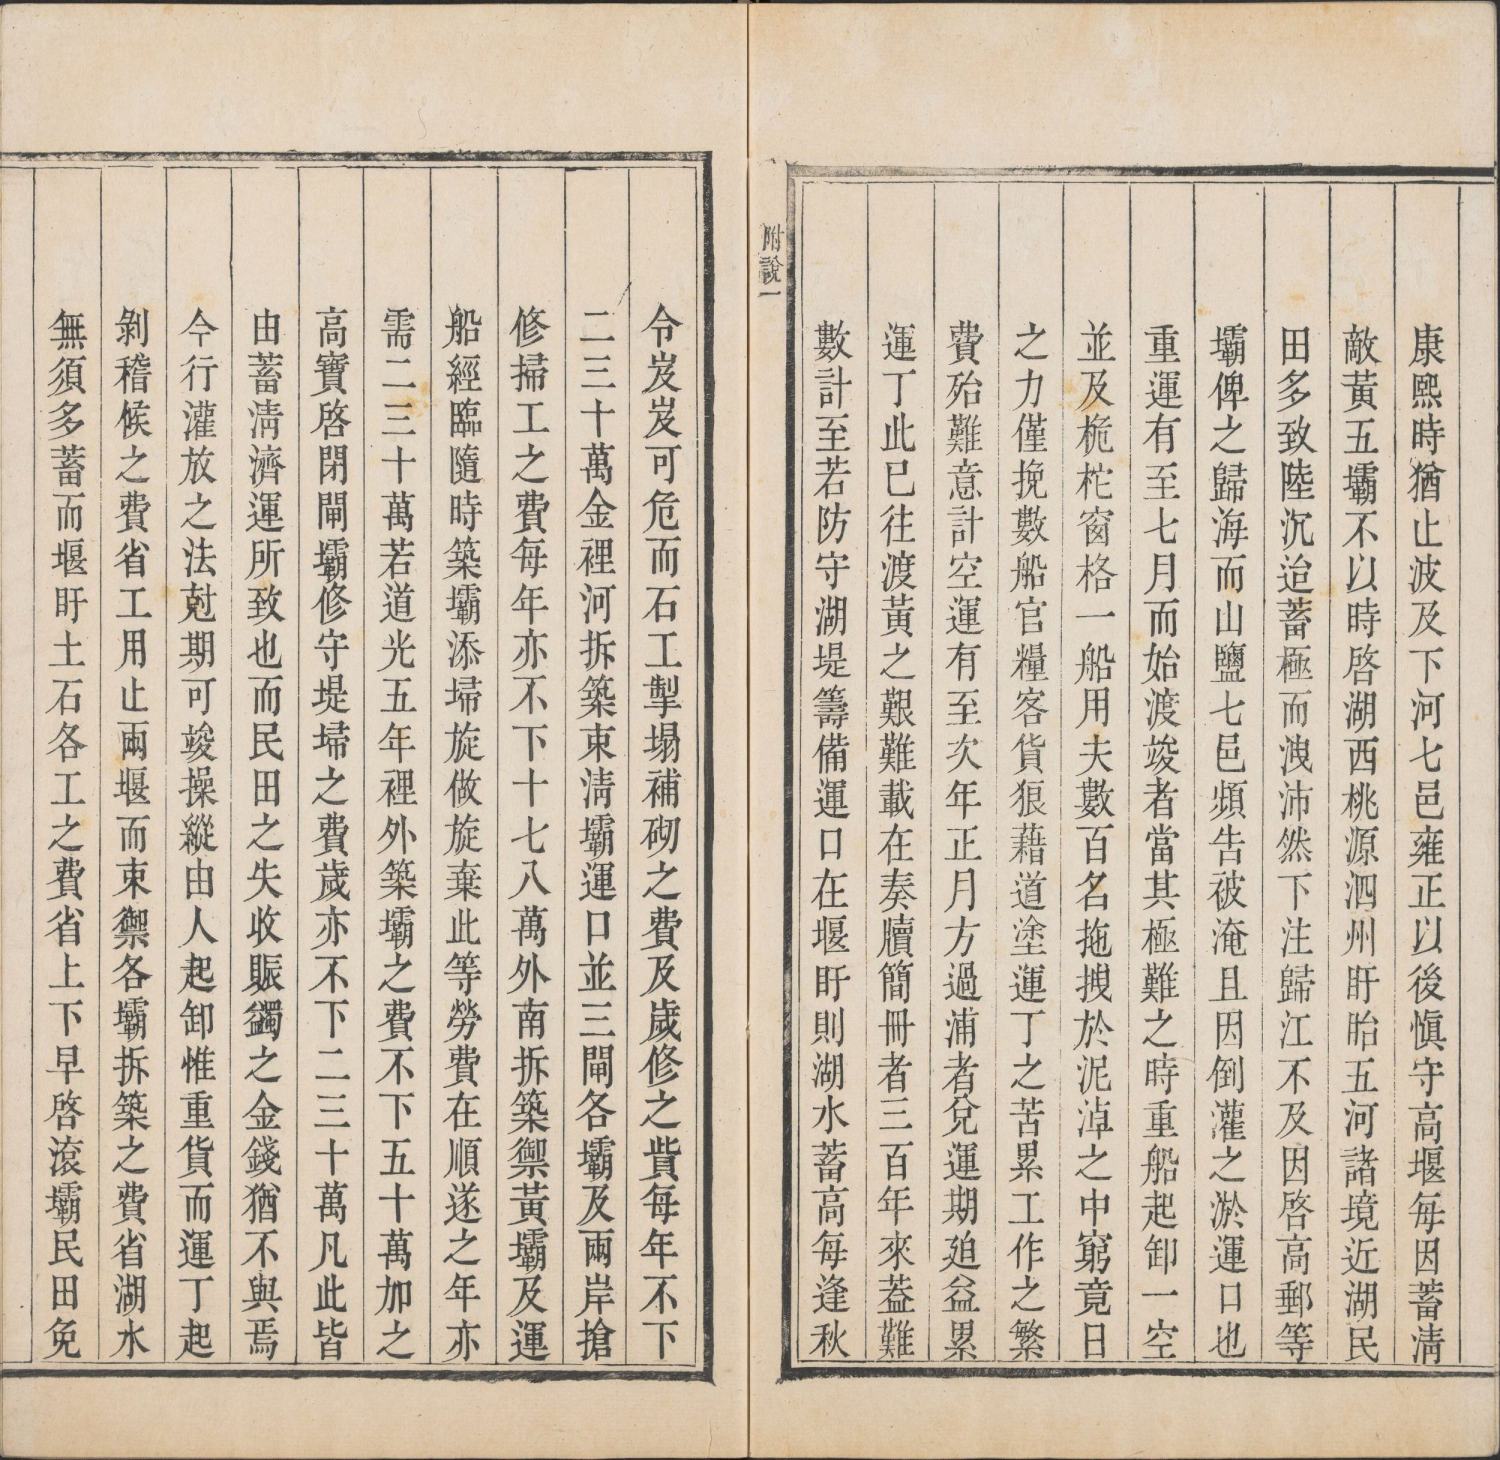 康熙時猶止波及下河七邑雍正以後慎守高堰每因蓄淸
敵黃五壩不以時啓湖西桃源泗州盱眙五河諸境近湖民
田多致陸沉迨蓄極而洩沛然下注歸江不及因啓高郵等
壩俾之歸海而山鹽七邑頻告被淹且因倒灌之淤運口也
重運有至七月而始渡竣者當其極難之時重船起卸一空
並及桅柁窗格一船用夫數百名拖拽於泥淖之中窮竟日
之力僅挽數船官糧客貨狼藉道塗運丁之苦累工作之繁
費殆難意計空運有至次年正月方過浦者兌運期廹益累
運丁此已往渡黃之艱難載在奏牘簡冊者三百年來葢難
數計至若防守湖堤籌備運口在堰盱則湖水蓄高每逢秋
附說一
令岌岌可危而石工掣塌補砌之費及歲修之貲每年不下
二三十萬金裡河拆築束淸壩運口並三閘各壩及兩岸搶
修掃工之費每年亦不下十七八萬外南拆築禦黃壩及運
船經臨隨時築壩添埽旋做旋棄此等勞費在順遂之年亦
需二三十萬若道光五年裡外築壩之費不下五十萬加之
高寶啓閉閘壩修守堤埽之費歲亦不下二三十萬凡此皆
由蓄淸濟運所致也而民田之失收賑蠲之金錢猶不與焉
今行灌放之法尅期可竣操縱由人起卸惟重貨而運丁起
剝稽候之費省工用止兩堰而束禦各壩拆築之費省湖水
無須多蓄而堰盱土石各工之費省上下早啓滾壩民田免